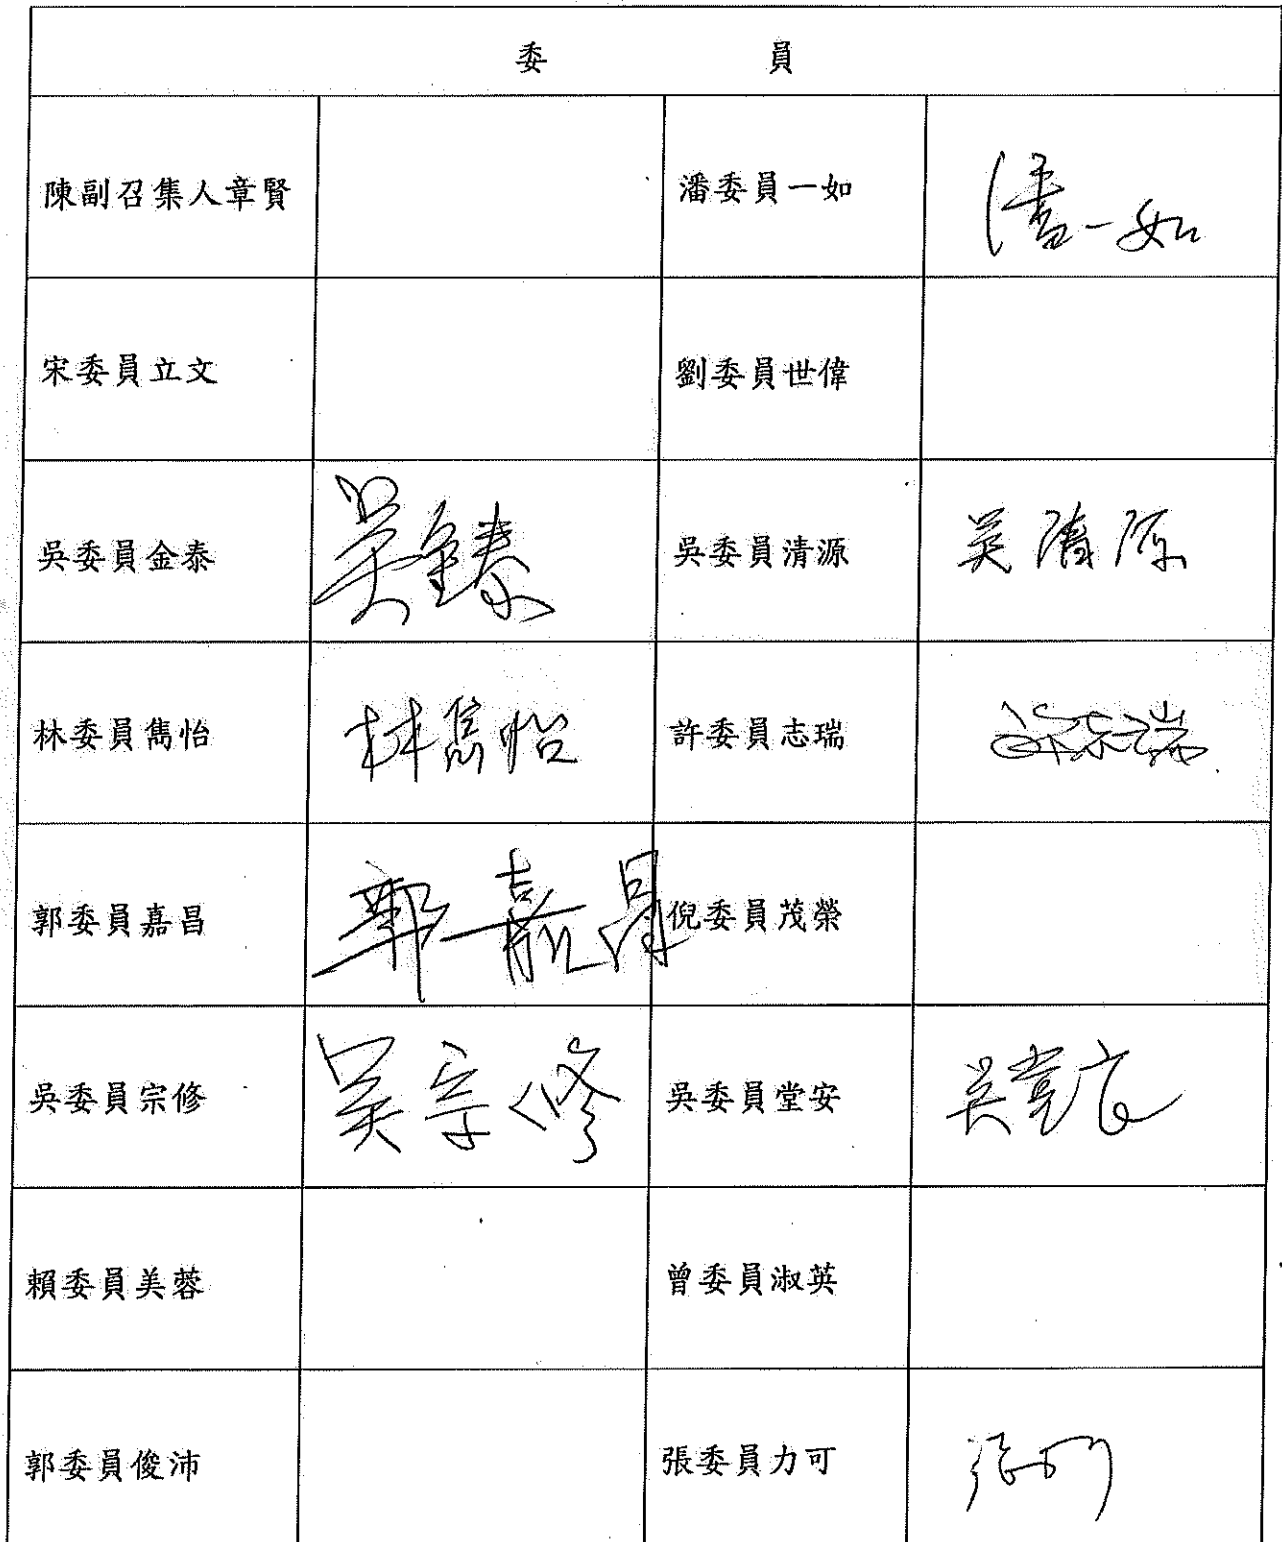 委 員
陳副召集人章賢 潘委員一如 潘一如
宋委員立文 劉委員世偉
吳委員金泰 吳金泰 吳委員清源 吳清源
林委員雋怡 林雋怡 許委員志瑞 許志瑞
郭委員嘉昌 郭嘉昌 倪委員茂榮
吳委員宗修 吳宗修 吳委員堂安 吳堂安
賴委員美蓉 曾委員淑英
郭委員俊沛 張委員力可 張力可